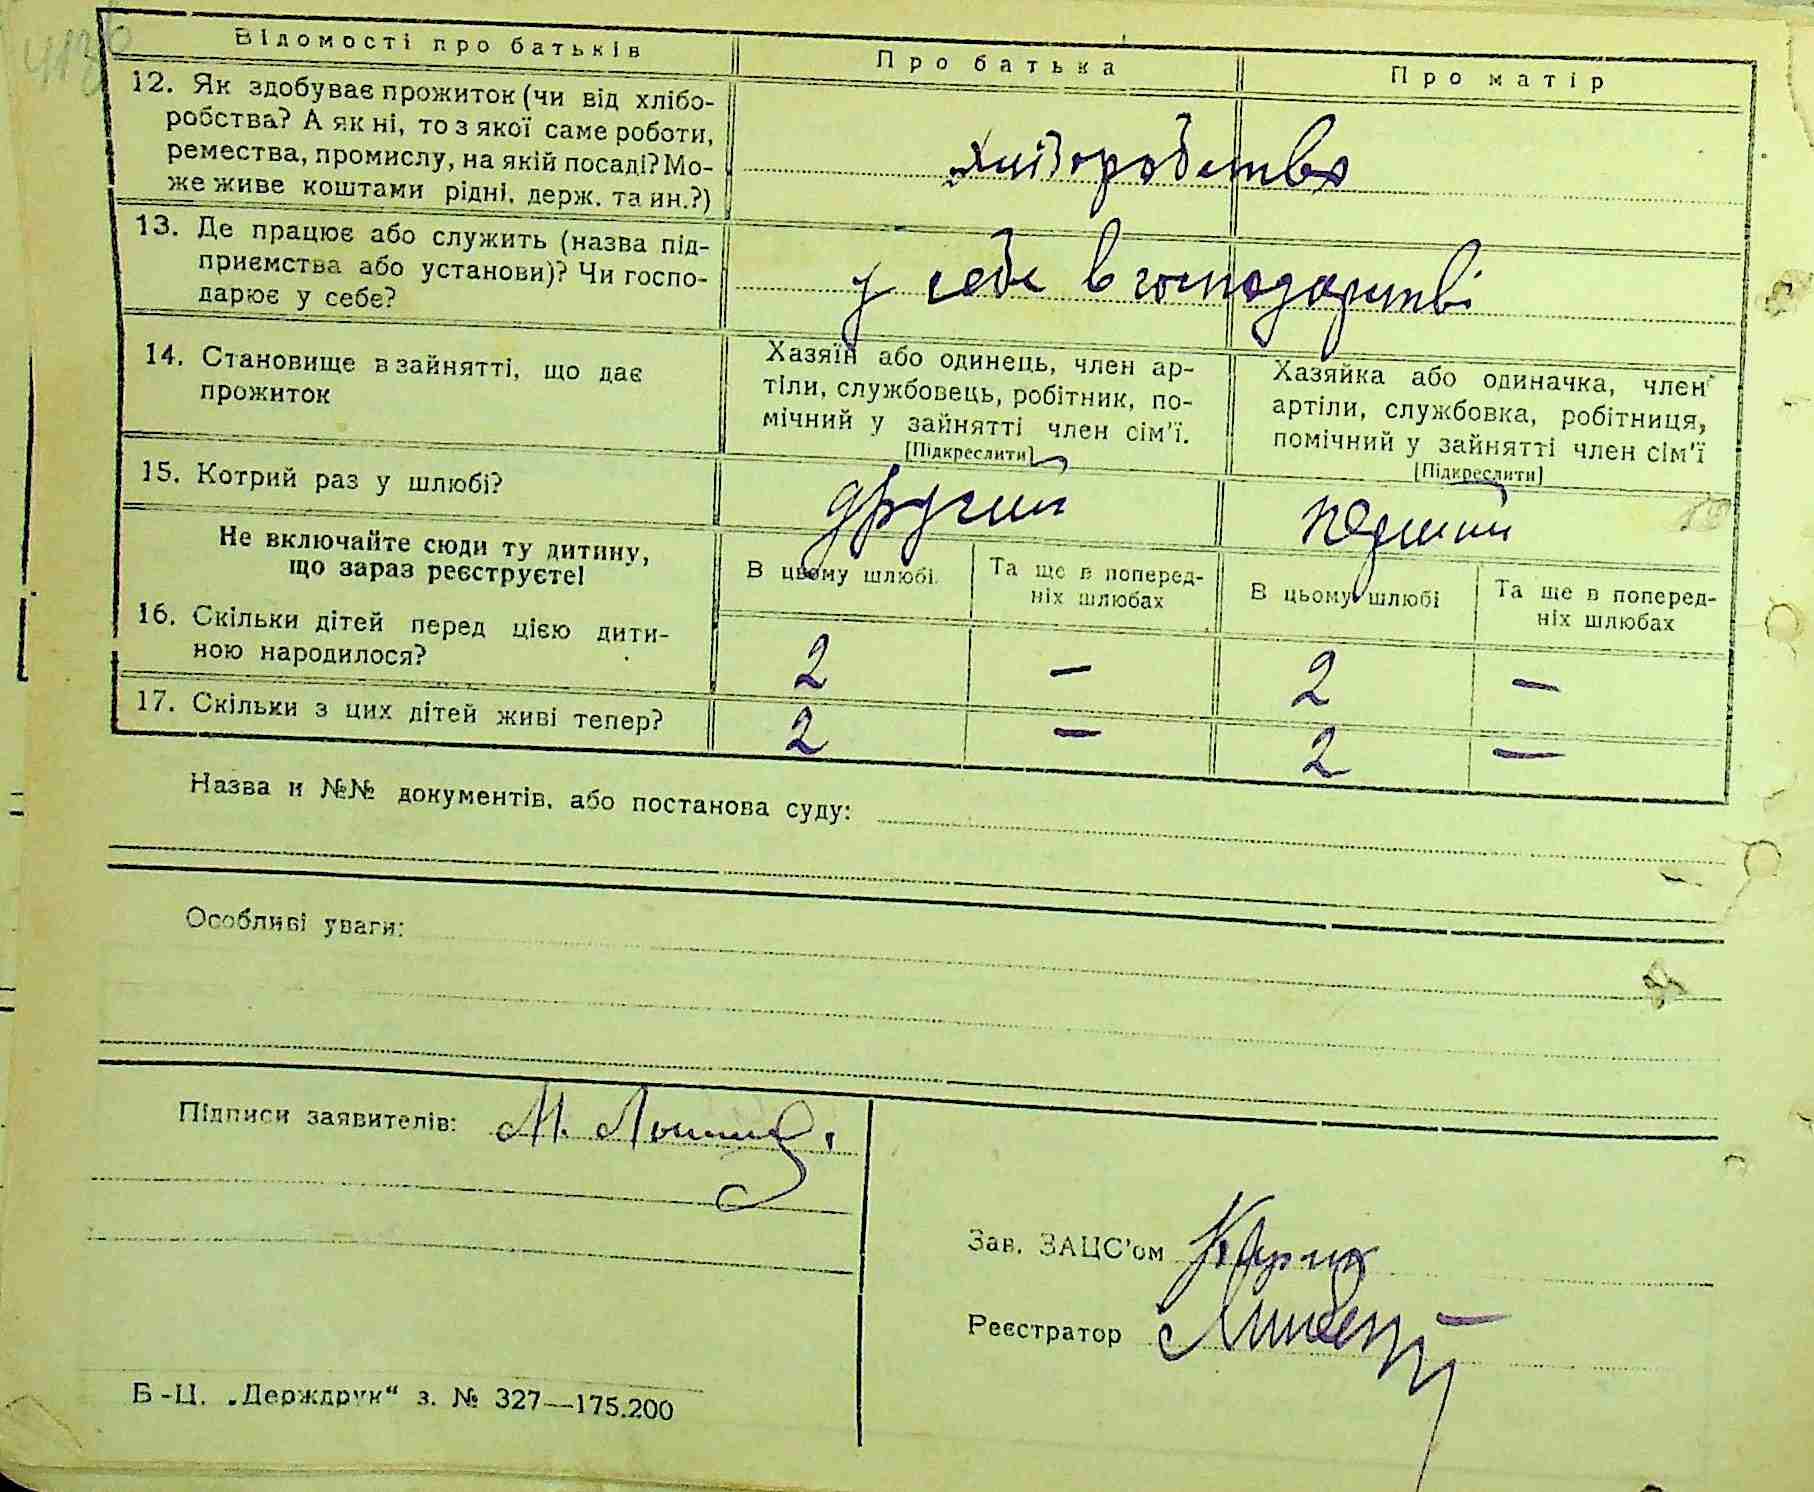 Відомості про батьків Про батька Про матір
12. Як здобуває прожиток (чи від хлібо-
робства? А як ні, то з якої саме роботи,
ремества, промислу, на якій посаді? Мо-
же живе коштами рідні, держ. та ин.?)
хліборобство
13. Де працює або служить (назва під-
приємства або установи)? Чи госпо-
дарює у себе?
у себе в господарстві
14. Становище в зайнятті, що дає
прожиток
Хазяїн або одинець, член ар-
тіли, службовець, робітник, по-
мічний у зайнятті член сім'ї.
[Підкреслити]
Хазяйка або одиначка, член
артіли, службовка, робітниця,
помічний у зайнятті член сім'ї
[Підкреслити]
15. Котрий раз у шлюбі? другий
Не включайте сюди ту дитину,
що зараз реєструєте!
В цьому шлюбі Та ще в поперед-
ніх шлюбах
В цьому шлюбі Та ще в поперед-
ніх шлюбах
16. Скільки дітей перед цією дити-
ною народилося?
2 — 2 —
17. Скільки з цих дітей живі тепер? 2 — 2 —
Назва и №№ документів, або постанова суду:
Особливі уваги:
Підписи заявителів: М.
Зав. ЗАЦС'ом
Реєстратор
Б-Ц. „Держдрук“ з. № 327—175.200